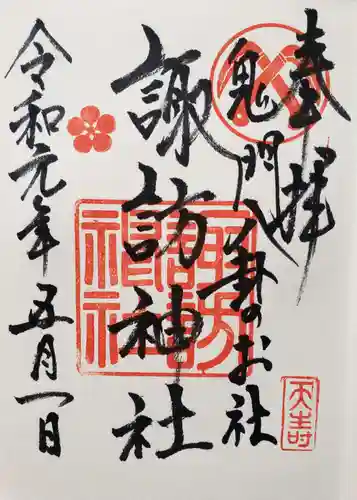 奉拝
鬼門のお社
諏訪神社
諏訪
神社
令和元年五月一日